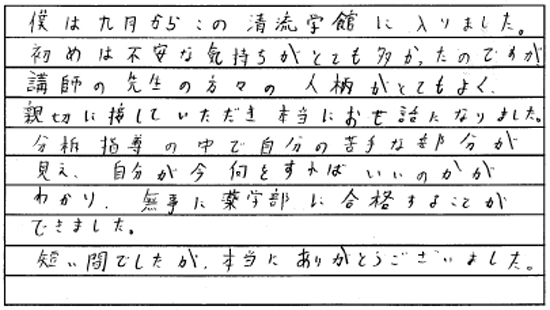 僕は九月からこの清流学館に入りました。
初めは不安な気持ちがとても多かったのですが、
講師の先生の方々の人柄がとてもよく、
親切に接していただき本当にお世話になりました。
分析指導の中で自分の苦手な部分が
見え、自分が今何をすればいいのかが
わかり、無事に薬学部に合格することが
できました。
短い間でしたが、本当にありがとうございました。